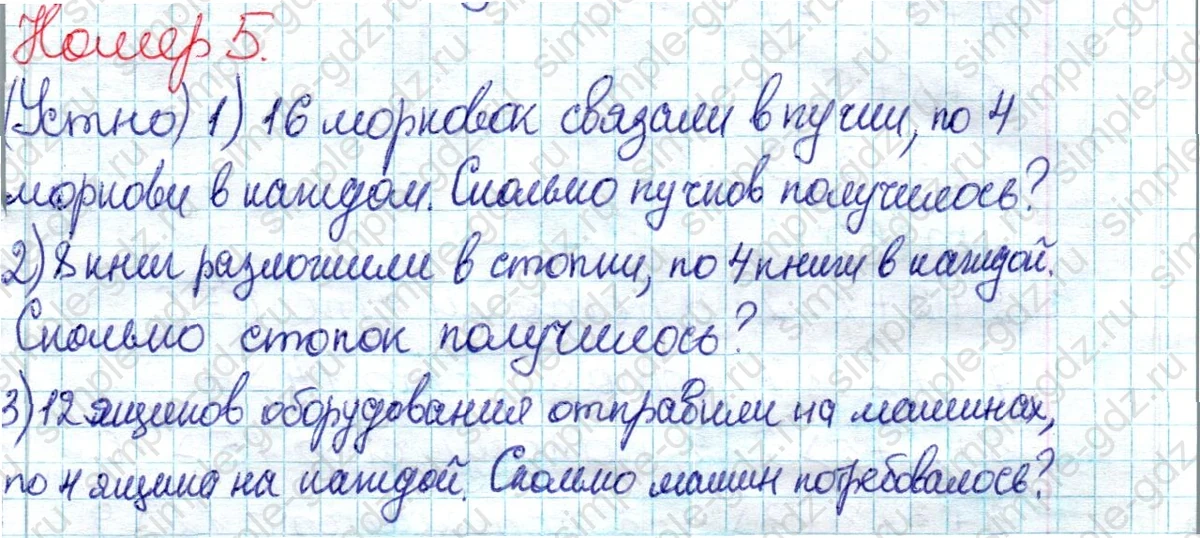 Номер 5.
(Устно) 1) 16 морковок связали в пучки, по 4
моркови в каждом. Сколько пучков получилось?
2) 8 книг разложили в стопки, по 4 книги в каждой.
Сколько стопок получилось?
3) 12 ящиков оборудования отправили на машинах,
по 4 ящика на каждой. Сколько машин потребовалось?